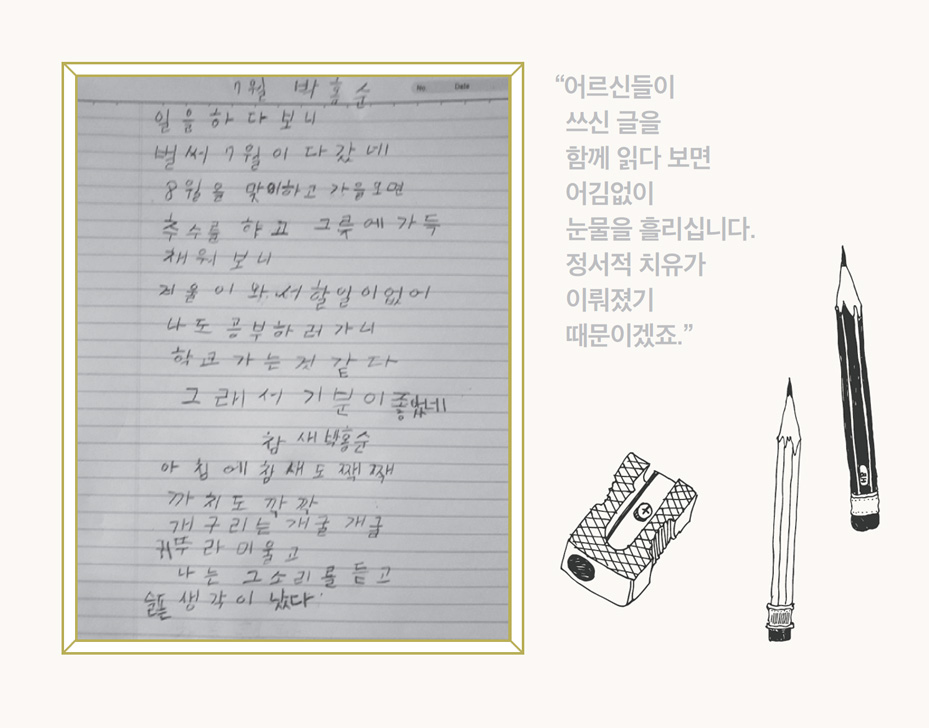 7월 박홍순
No Date
일을 하다보니
벌써 7월이 다 갔네
8월을 맞이하고 가을 오면
추수를 하고 그릇에 가득
채워 보니
겨울이 와서 할일이 없어
나도 공부하러 가니
학교 가는 것 같다
그래서 기분이 좋았네
참새 박홍순
아침에 참새도 짹짹
까치도 깍깍
개구리는 개굴 개굴
귀뚜라미 울고
나는 그 소리를 듣고
슬픈 생각이 났다
“어르신들이
쓰신 글을
함께 읽다 보면
어김없이
눈물을 흘리십니다.
정서적 치유가
이뤄졌기
때문이겠죠.”